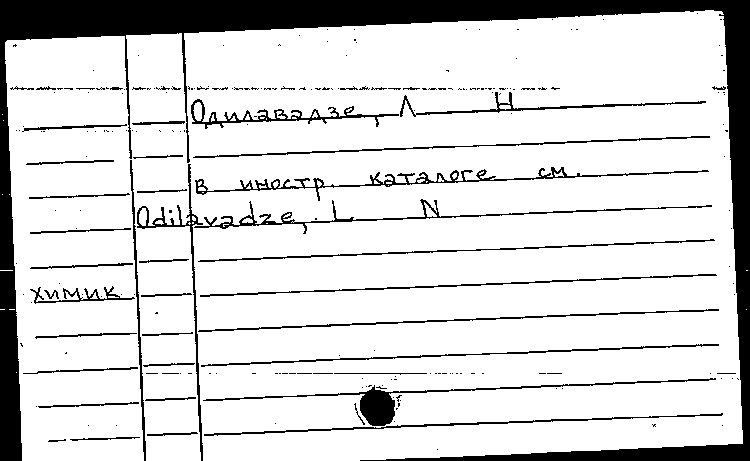 Одилавадзе, Л Н
в иностр. каталоге см.
Odilavadze, L N
химик